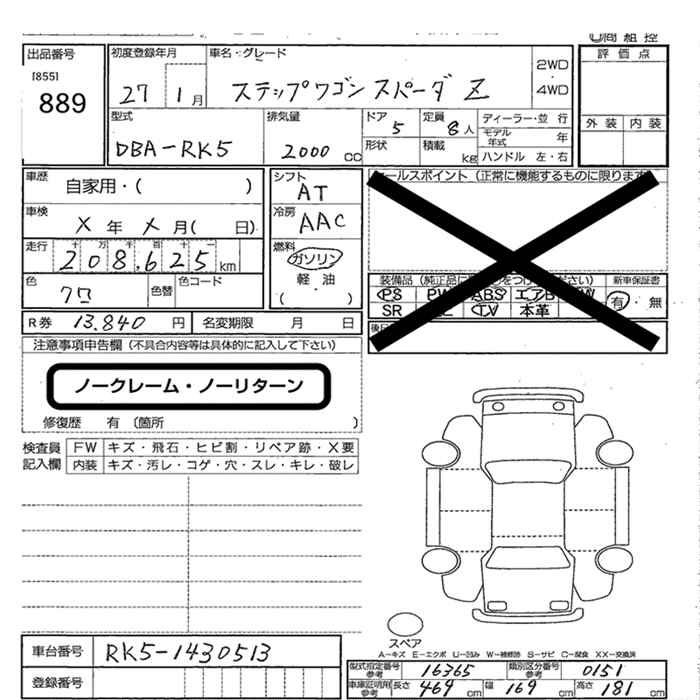 出品番号
[855]
889
初度登録年月
27 1月
車名・グレード
ステップワゴン スパーダ Z
2WD
・
4WD
評価点
外装 内装
型式
DBA-RK5
排気量
2000 CC
ドア 5
形状
定員 8人
積載 kg
ディーラー・並行
モデル年式 年
ハンドル 左・右
車歴 自家用・( )
車検 X年 X月( 日)
走行 十万千百十一
208,625 km
色 クロ
色替
色コード
シフト AT
冷房 AAC
燃料 ガソリン
軽・油
( )
セールスポイント(正常に機能するものに限ります
装備品(純正品に
つけ
ださい)
新車保証書
PS PW ABS エアB
SR TV 本革
有・無
R券 13,840 円
名変期限 月 日
注意事項申告欄(不具合内容等は具体的に記入して下さい)
ノークレーム・ノーリターン
修復歴 有〔箇所 〕
検査員記入欄
FW キズ・飛石・ヒビ割・リペア跡・X要
内装 キズ・汚レ・コゲ・穴・スレ・キレ・破レ
スペア
A-キズ E-エクボ U-凹み W-補修跡 S-サビ C-腐食 XX-交換済
車台番号 RK5-1430513
登録番号
型式指定番号参考 16365
類別区分番号参考 0151
車庫証明用参考 長さ 469 cm 幅 169 cm 高さ 181 cm